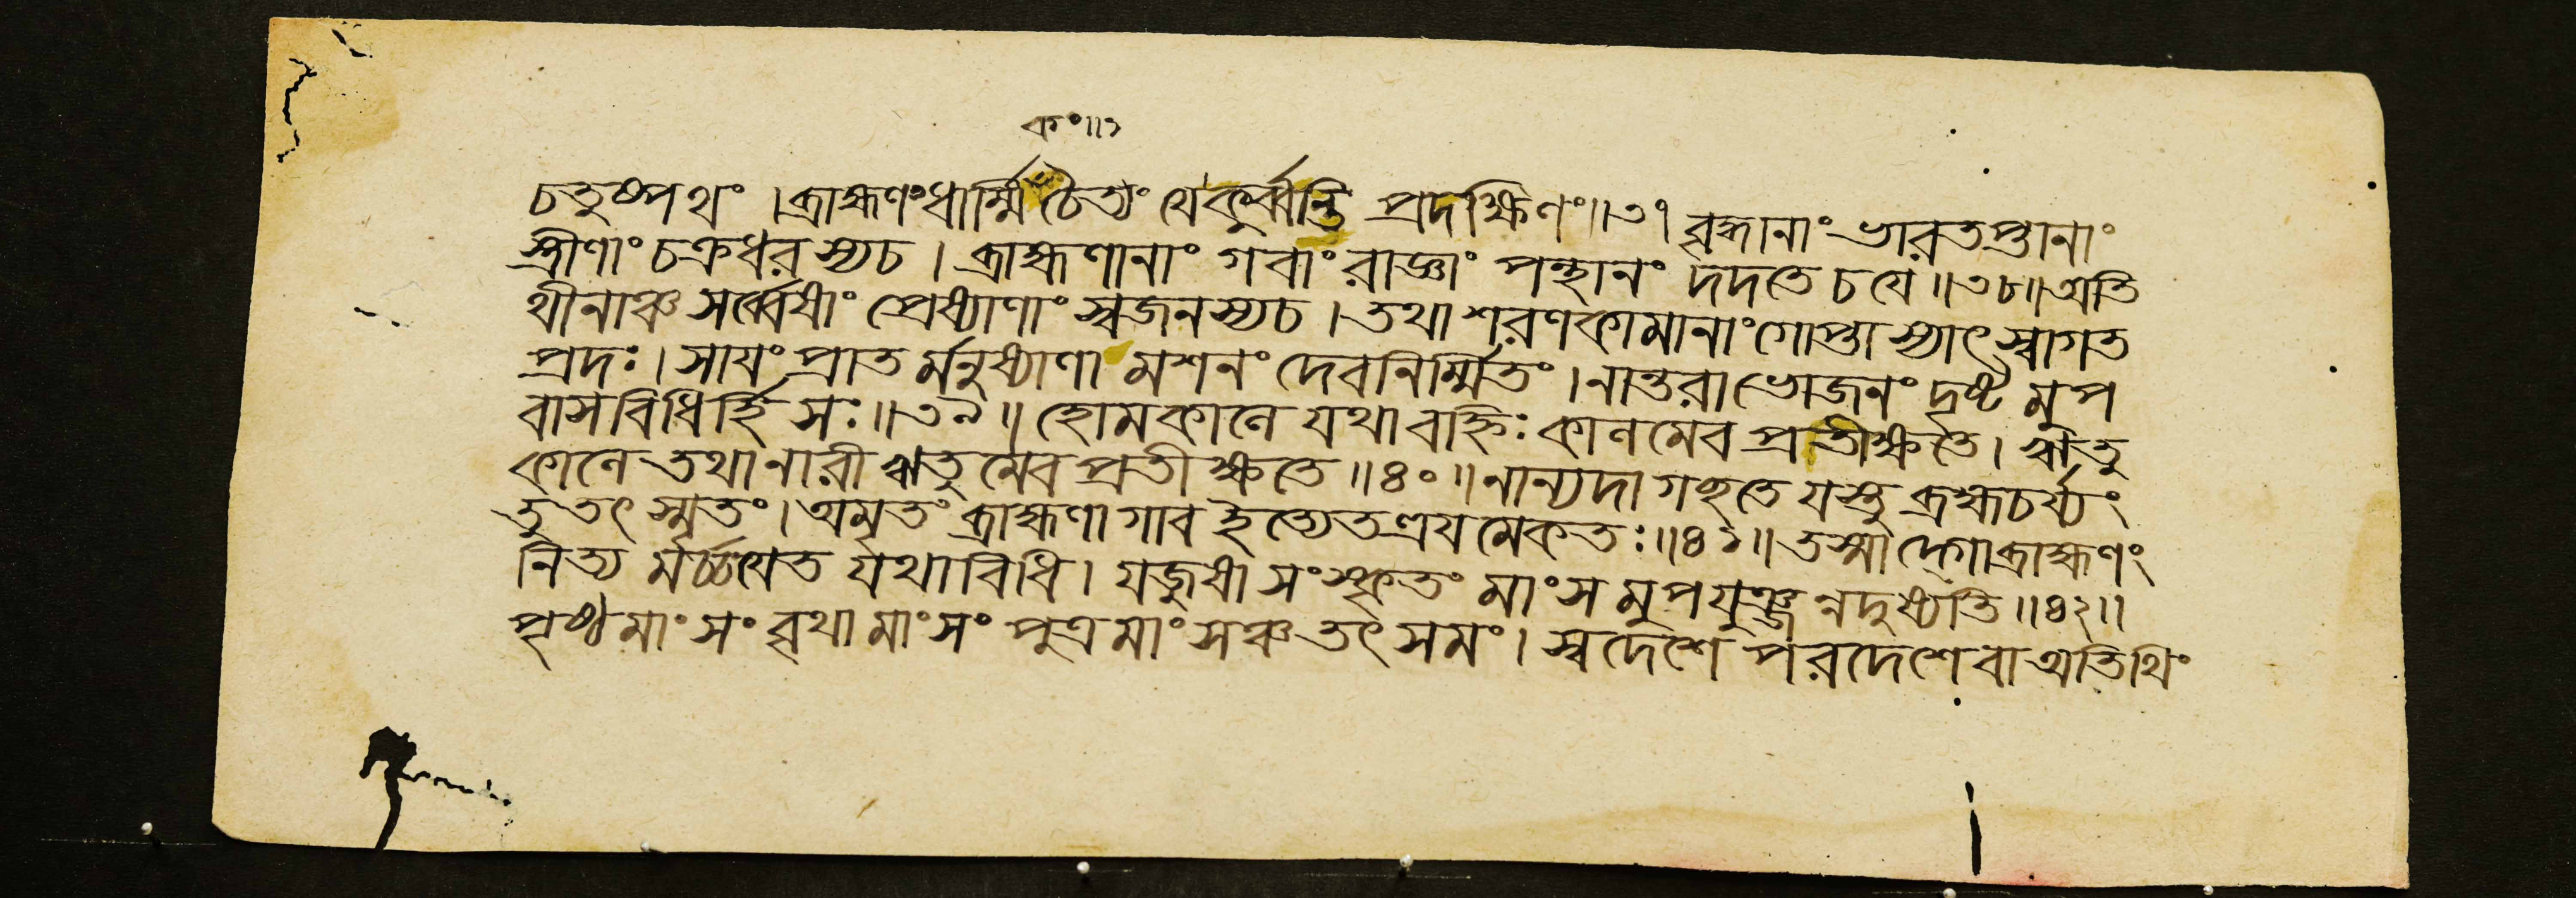 কং॥১
চতুষ্পথং।ব্রাহ্মণংধার্ম্মিচৈত্যং যেকুর্ব্বন্তি প্রদক্ষিণং॥৩৭ বৃদ্ধানাং ভারতপ্তানাং
স্ত্রীণাং চক্রধরস্যচ। ব্রাহ্মণানাং গবাং রাজ্ঞাং পন্থানং দদতে চ যে॥৩৮॥অতি
থীনাঞ্চ সর্ব্বেষাং প্রেষ্যাণাং স্বজনস্যচ।তথা শরণকামানাং গোপ্তা স্যাৎ স্বাগত
প্রদঃ।সায়ং প্রাত র্মনুষ্যাণা মশনং দেবনির্ম্মিতং।নান্তরা ভোজনং দৃষ্ট মুপ
বাসবিধির্হি সঃ॥৩৯॥ হোমকালে যথা বহ্নিঃ কালমেব প্রতীক্ষতে। ঋতু
কালে তথা নারী ঋতুমেব প্রতীক্ষতে॥৪০॥নান্যদা গছতে যস্তু ব্রহ্মচর্য্যং
তু তৎ স্মৃতং।অমৃতং ব্রাহ্মণা গাব ইত্যেতত্রয়মেকতঃ॥৪১॥তস্মাদ্গোব্রাহ্মণং
নিত্য মর্চ্চয়েত যথাবিধি। যজুষা সংস্কৃতং মাংস মুপযুঞ্জন্নদুষ্যতি॥৪২॥
পৃষ্ঠমাংসং বৃথামাংসং পুত্রমাংসঞ্চ তৎ সমং। স্বদেশে পরদেশে বা অতিথিং